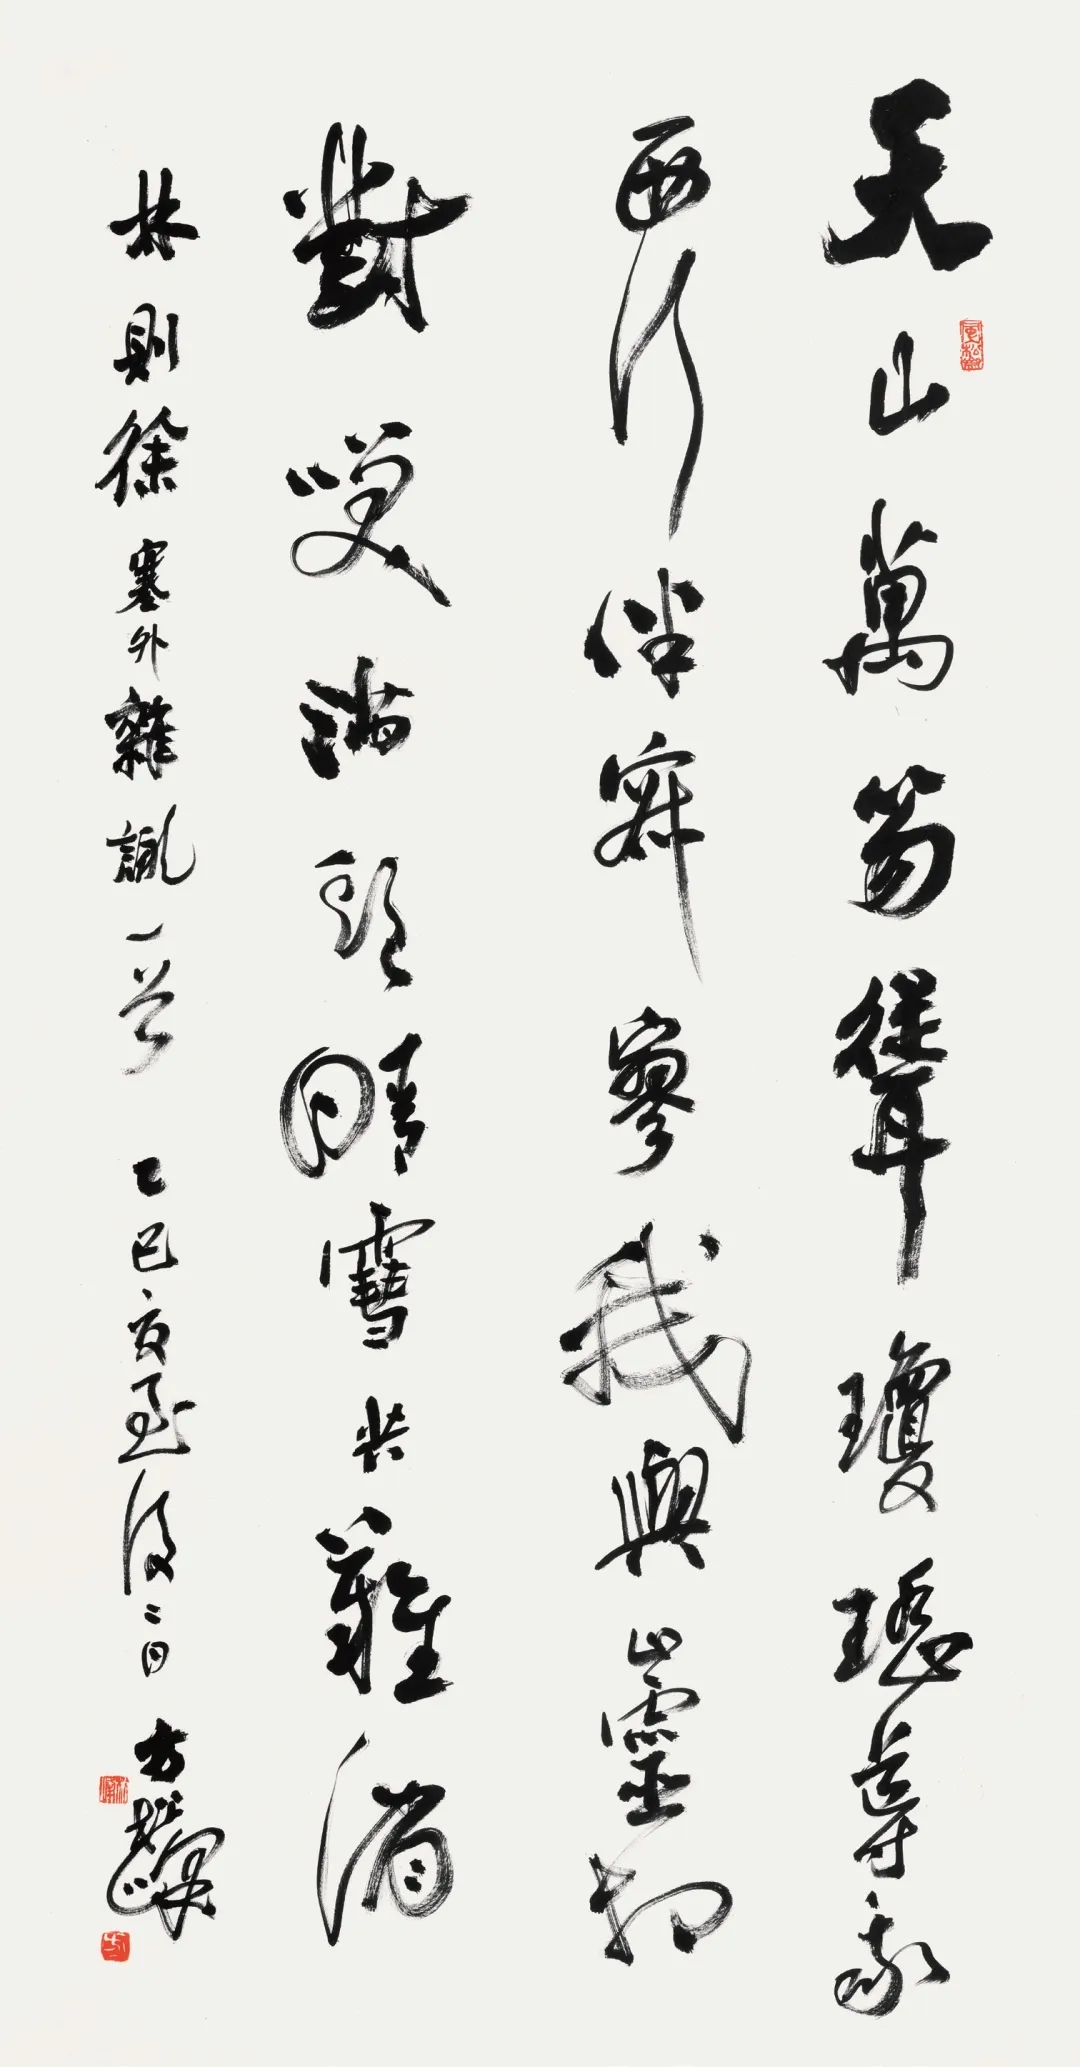 天山萬笏聳瓊瑤導我
西行伴寂寥我與山靈相
對咲滿頭晴雪共難消
林則徐塞外雜一首 乙巳夏至後二日 方